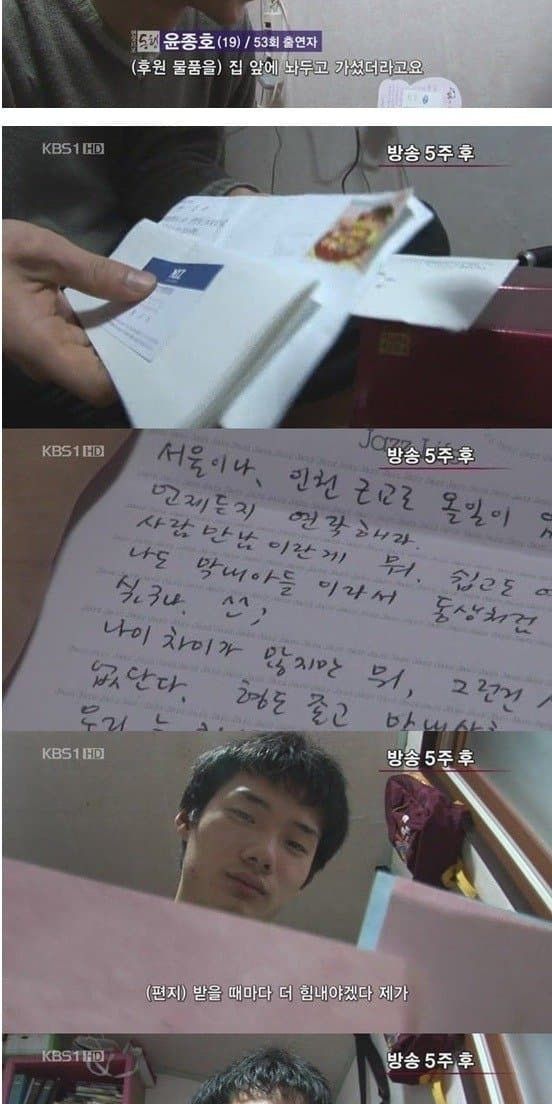 동행 윤종호 (19) / 53회 출연자
(후원 물품을) 집 앞에 놔두고 가셨더라고요
KBS1 HD
방송 5주 후
KBS1 HD
방송 5주 후
Jazz
서울이나, 인천 근교로 올일이
언제든지 연락해라.
사람 만남 이란게 뭐. 쉽고도
나도 막내아들 이라서 동생처럼
싶구나. ^^;
나이 차이가 많지만 뭐, 그런건
없단다. 형도 줄고
우리
KBS1 HD
방송 5주 후
(편지) 받을 때마다 더 힘내야겠다 제가
KBS1 HD
방송 5주 후